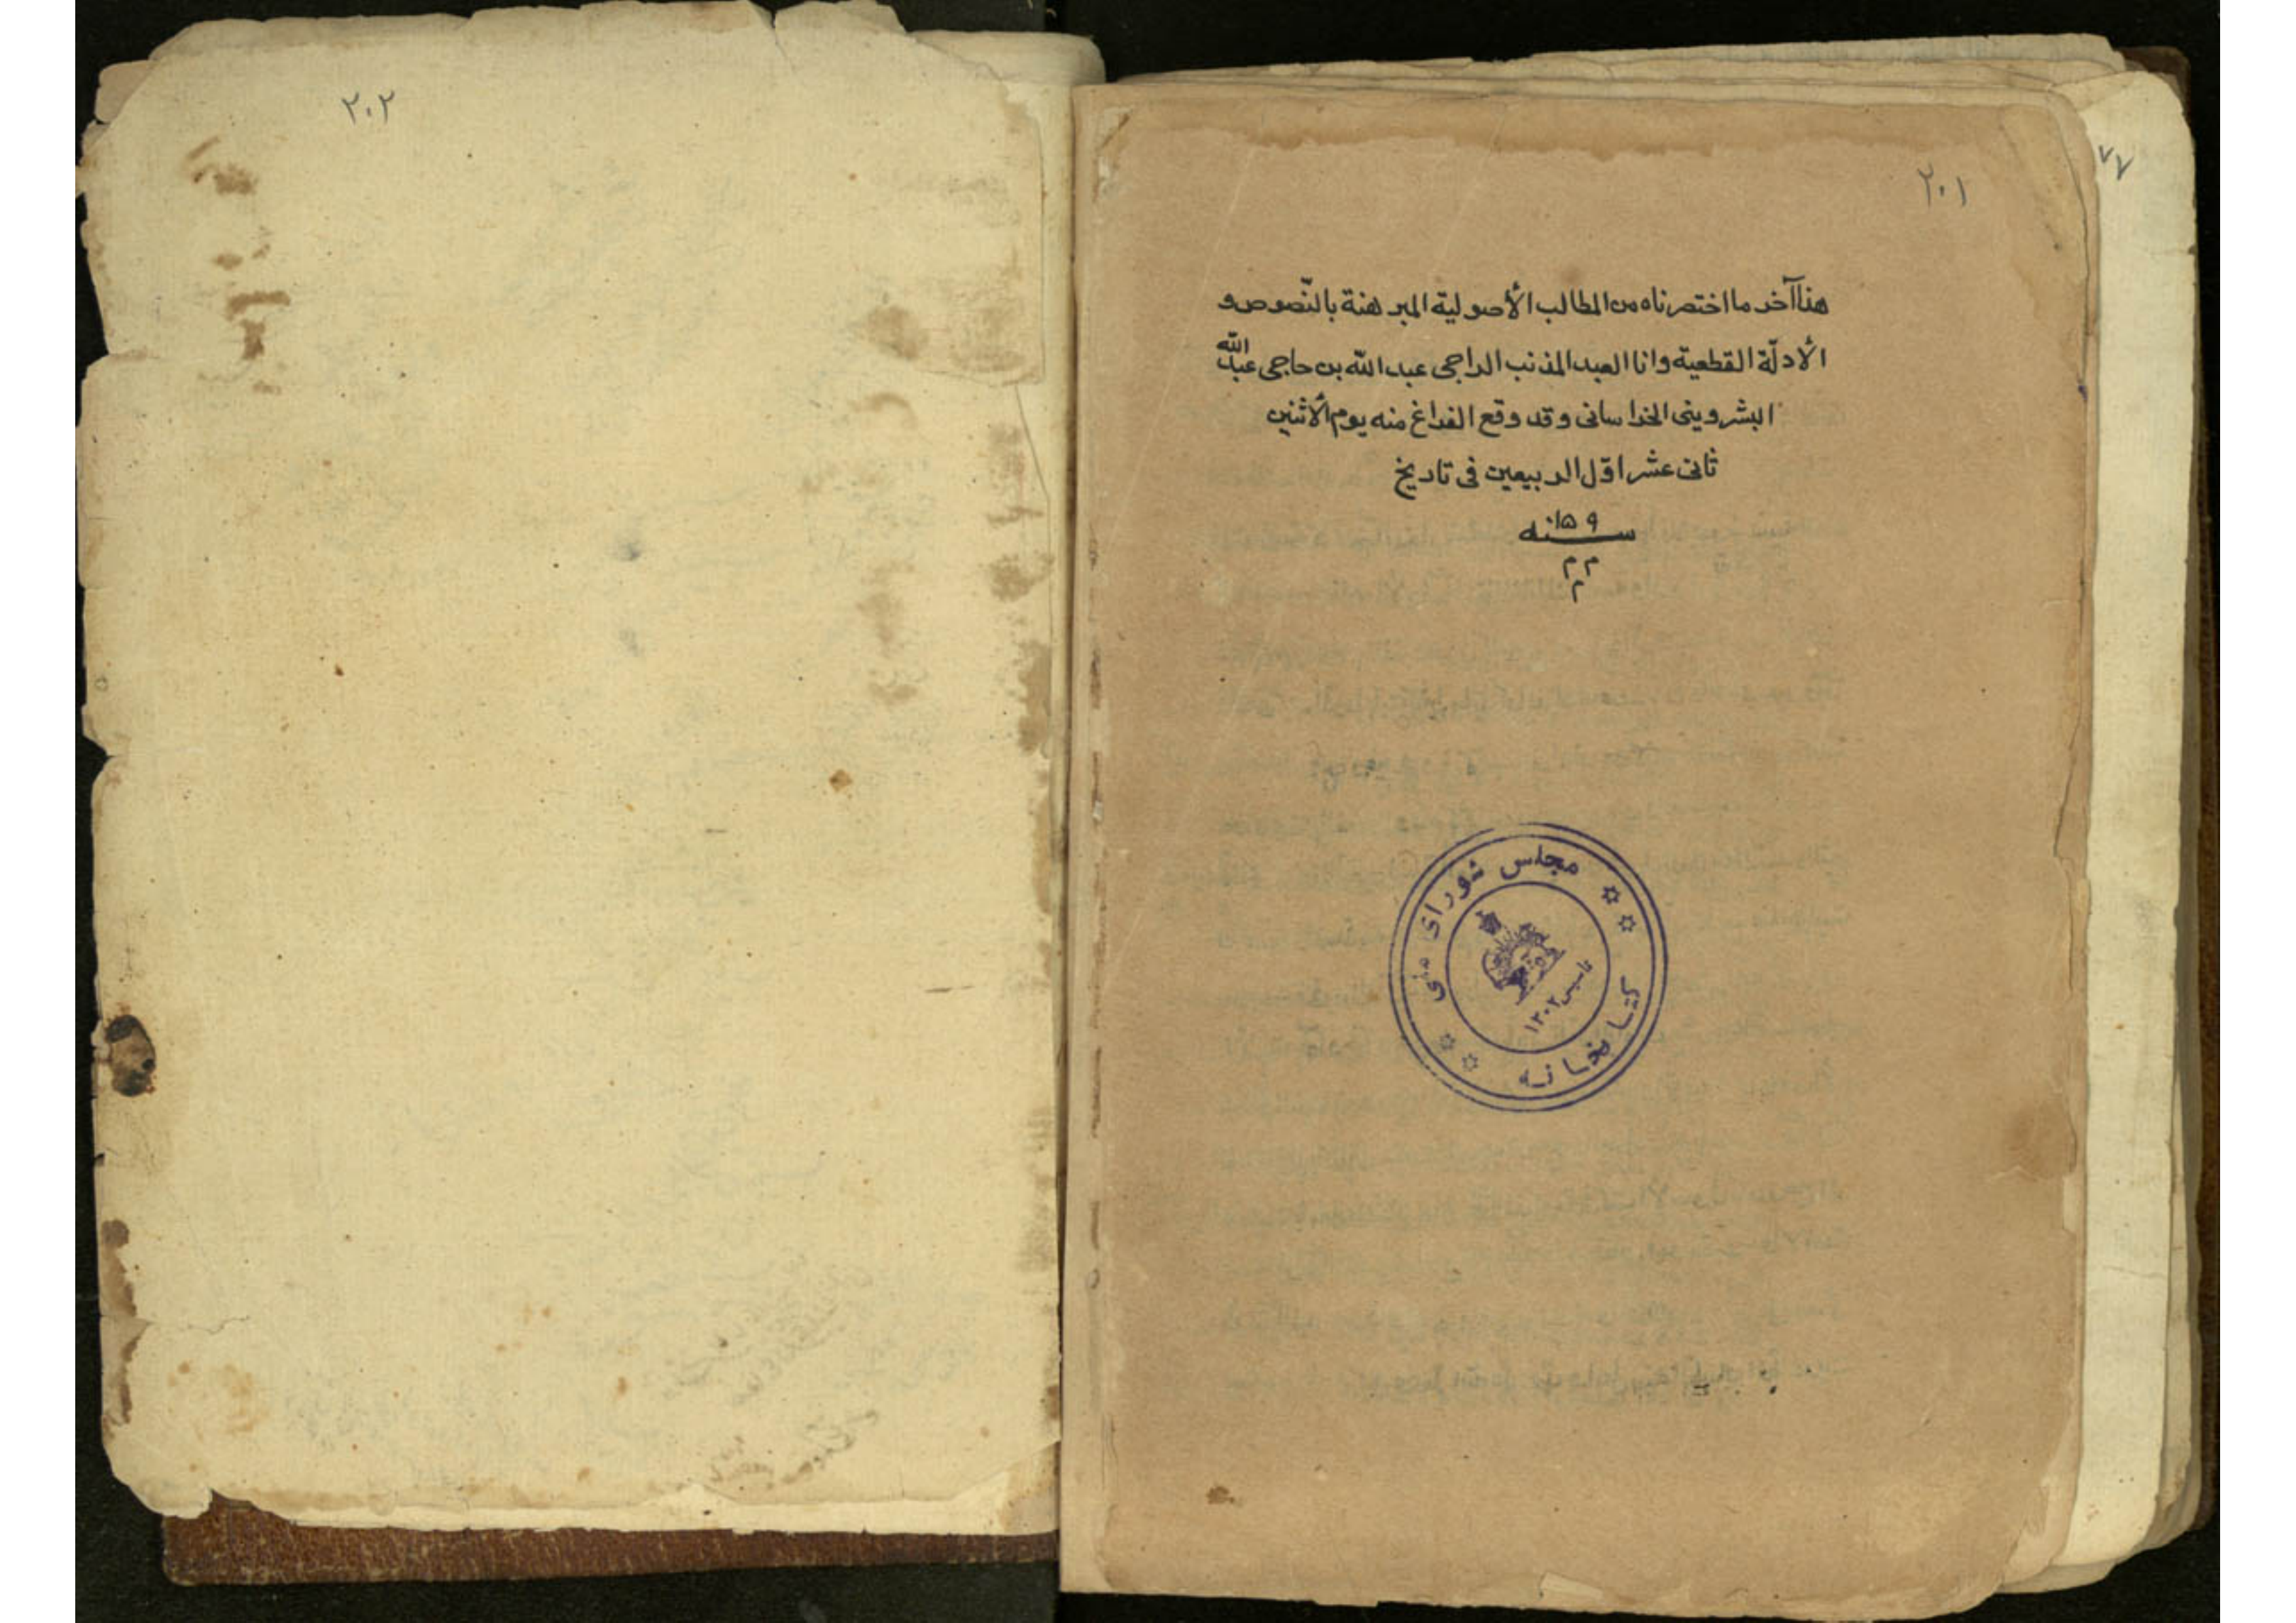 ٢٠١
هذا آخر ما اختصرناه من المطالب الأصولية المبرهنة بالنّصوص و
الأدلّة القطعية وانا العبد المذنب الراجى عبد الله بن حاجى عبد الله
البشروينى الخراسانى وقد وقع الفراغ منه يوم الأثنين
ثانى عشر اوّل الربيعين فى تاريخ
سنه ١٠٥٩
م م
م
مجلس شورای ملی
کتابخانه
تاسیس ١٣٠٢
٧٧
٢٠٢